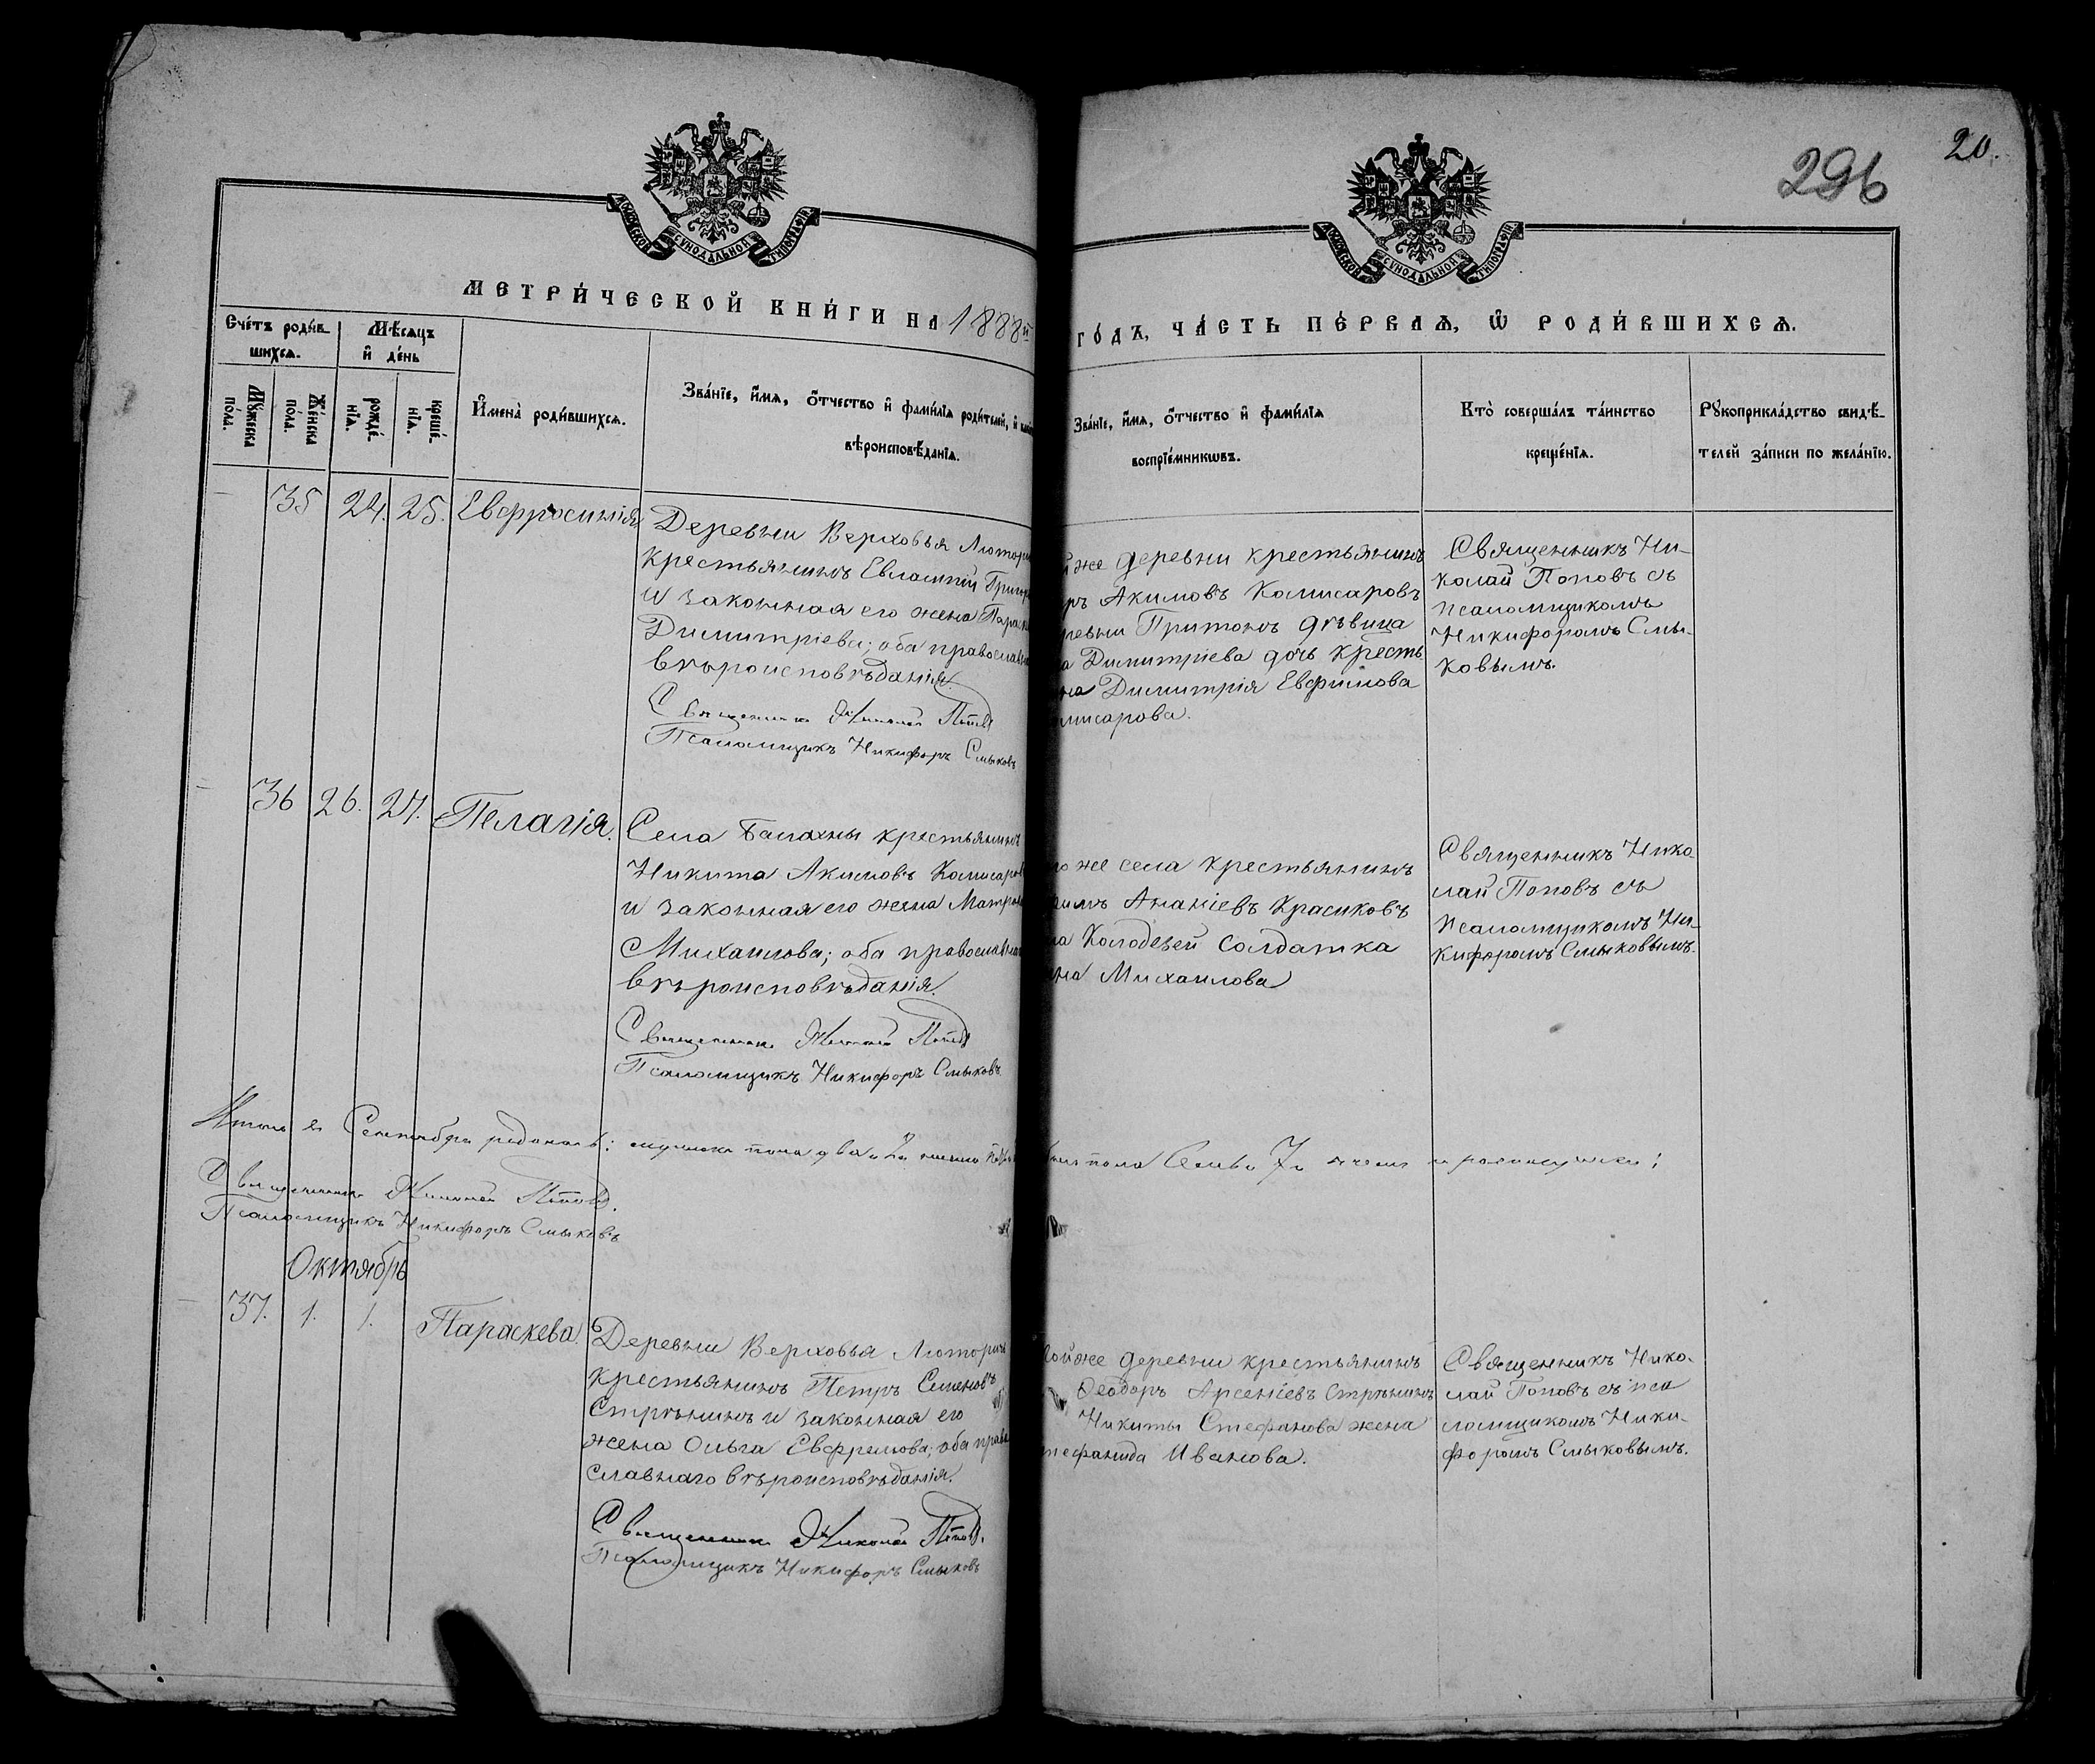 296
20.
МОСКОВСКОЙ СѴНОДАЛЬНОЙ ТИПОГРАФІИ
МОСКОВСКОЙ СѴНОДАЛЬНОЙ ТИПОГРАФІИ
МЕТРИ́ЧЕСКОЙ КНИ́ГИ НА 1888й
ГО́ДЪ, ЧА́СТЬ ПЕ́РВАѦ, Ѿ РОДИ́ВШИХСѦ.
Сче́тъ роди́в-
шихсѧ.
Мѣ́сѧцъ
и҆ де́нь
Мꙋ́жеска
по́ла.
Же́нска
по́ла.
рожде́-
нїѧ.
креще́-
нїѧ.
И҆мена̀ роди́вшихсѧ.
Зва́нїе, и҆́мѧ, ѻ҆́тчество и҆ фами́лїѧ роди́телей, и҆
вѣроисповѣ́данїѧ.
Зва́нїе, и҆́мѧ, ѻ҆́тчество и҆ фами́лїѧ
воспрїе́мникѡвъ.
Кто̀ соверша́лъ та́инство
креще́нїѧ.
Рꙋкоприкла́дство свидѣ́-
телей за́писи по жела́нїю.
35 24. 25. Евфросинія
Деревни Верховья Лютори
крестьянинъ Евлампій Григор
и законная его жена Парас
Димитріева; оба православн
вѣроисповѣданія.
Священникъ Николай Поповъ
Псаломщикъ Никифоръ Смыковъ
й же деревни крестьянинъ
ръ Акимовъ Комисаровъ
ревни Притонъ дѣвица
а Димитріева дочь кресть
на Димитрія Евфимова
мисарова.
Священникъ Ни-
колай Поповъ съ
псаломщикомъ
Никифоромъ Смы-
ковымъ.
36 26. 27. Пелагія.
Села Балахны крестьянинъ
Никита Акимовъ Комисаров
и законная его жена Матрон
Михаилова; оба православна
вѣроисповѣданія.
Священникъ Николай Поповъ
Псаломщикъ Никифоръ Смыковъ.
го же села крестьянинъ
имъ Ананіевъ Красиковъ
ла Колодезей солдатка
на Михаилова
Священникъ Нико-
лай Поповъ съ
псаломщикомъ Ни-
кифоромъ Смыковымъ.
Итого въ Сентябрѣ родилось: мужеска пола два 2
пола Семь 7
Священникъ Николай Поповъ.
Псаломщикъ Никифоръ Смыковъ
Октябрь
37. 1. 1. Параскева.
Деревни Верховья Люторичъ
крестьянинъ Петръ Семеновъ
Стрѣнинъ и законная его
жена Ольга Евфремова; оба право
славнаго вѣроисповѣданія.
Священникъ Николай Поповъ.
Псаломщикъ Никифоръ Смыковъ
той же деревни крестьянинъ
Ѳеодоръ Арсеніевъ Стрѣнинъ
Никиты Стефанова жена
тефанида Иванова.
Священникъ Нико-
лай Поповъ съ пса
ломщикомъ Ники-
форомъ Смыковымъ.